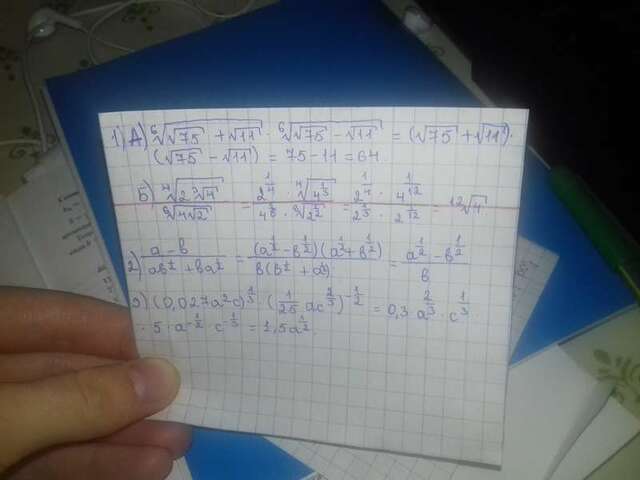 1) А) ⁶√(√75 + √11) · ⁶√(√75 − √11) = (√75 + √11)·
(√75 − √11) = 75 − 11 = 64
Б) ⁴√(2·∛4) / ∛(4√2) = 2^(1/4) · ⁴√(4^(1/3)) / 4^(1/3) · ∛(2^(1/2)) = 2^(1/4) · 4^(1/12) / 2^(2/3) · 2^(1/12) = ¹²√4
2) a − b / ab^(1/2) + ba^(1/2) = (a^(1/2) − b^(1/2))(a^(1/2) + b^(1/2)) / b(b^(1/2) + a^(1/2)) = a^(1/2) − b^(1/2) / b
3) (0,027a²c)^(1/3) · (1/25 ac^(2/3))^(−1/2) = 0,3 · a^(2/3) · c^(1/3) ·
· 5 · a^(−1/2) · c^(−1/3) = 1,5a^(1/2)